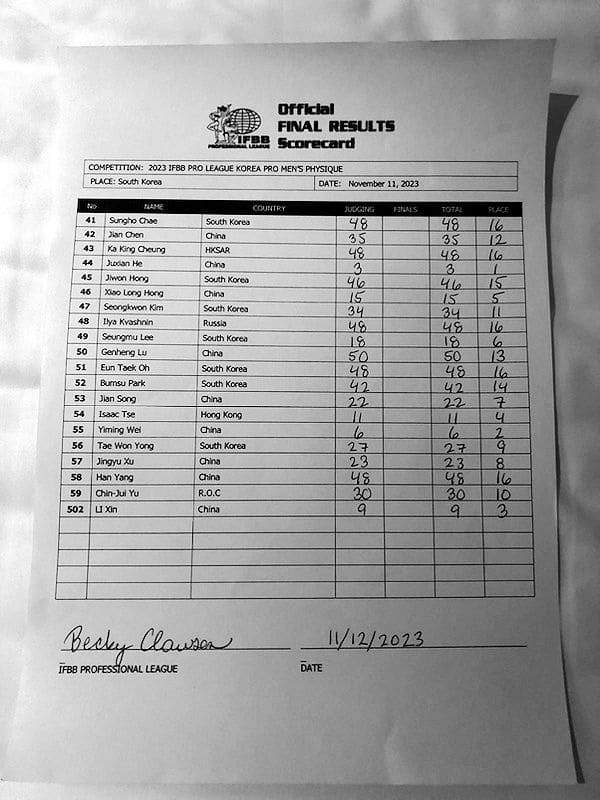 Official
FINAL RESULTS
Scorecard
IFBB
PROFESSIONAL LEAGUE
COMPETITION: 2023 IFBB PRO LEAGUE KOREA PRO MEN'S PHYSIQUE
PLACE: South Korea DATE: November 11, 2023
No NAME COUNTRY JUDGING FINALS TOTAL PLACE
41 Sungho Chae South Korea 48 48 16
42 Jian Chen China 35 35 12
43 Ka King Cheung HKSAR 48 48 16
44 Juxian He China 3 3 1
45 Jiwon Hong South Korea 46 46 15
46 Xiao Long Hong China 15 15 5
47 Seongkwon Kim South Korea 34 34 11
48 Ilya Kvashnin Russia 48 48 16
49 Seungmu Lee South Korea 18 18 6
50 Genheng Lu China 50 50 13
51 Eun Taek Oh South Korea 48 48 16
52 Bumsu Park South Korea 42 42 14
53 Jian Song China 22 22 7
54 Isaac Tse Hong Kong 11 11 4
55 Yiming Wei China 6 6 2
56 Tae Won Yong South Korea 27 27 9
57 Jingyu Xu China 23 23 8
58 Han Yang China 48 48 16
59 Chin-Jui Yu R.O.C 30 30 10
502 LI Xin China 9 9 3
Becky Clawson 11/12/2023
IFBB PROFESSIONAL LEAGUE DATE